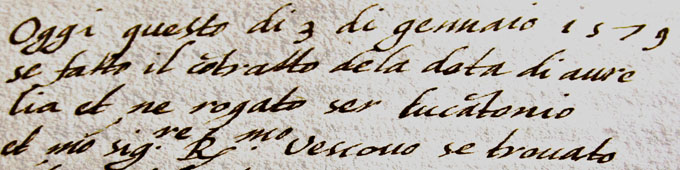 Oggi questo di 3 di gennaio 1579
se fatto il cõtratto dela dota di aure
lia et ne rogato ser lucãtonio
et mõ sig.re R.mo Vescouo se trouato